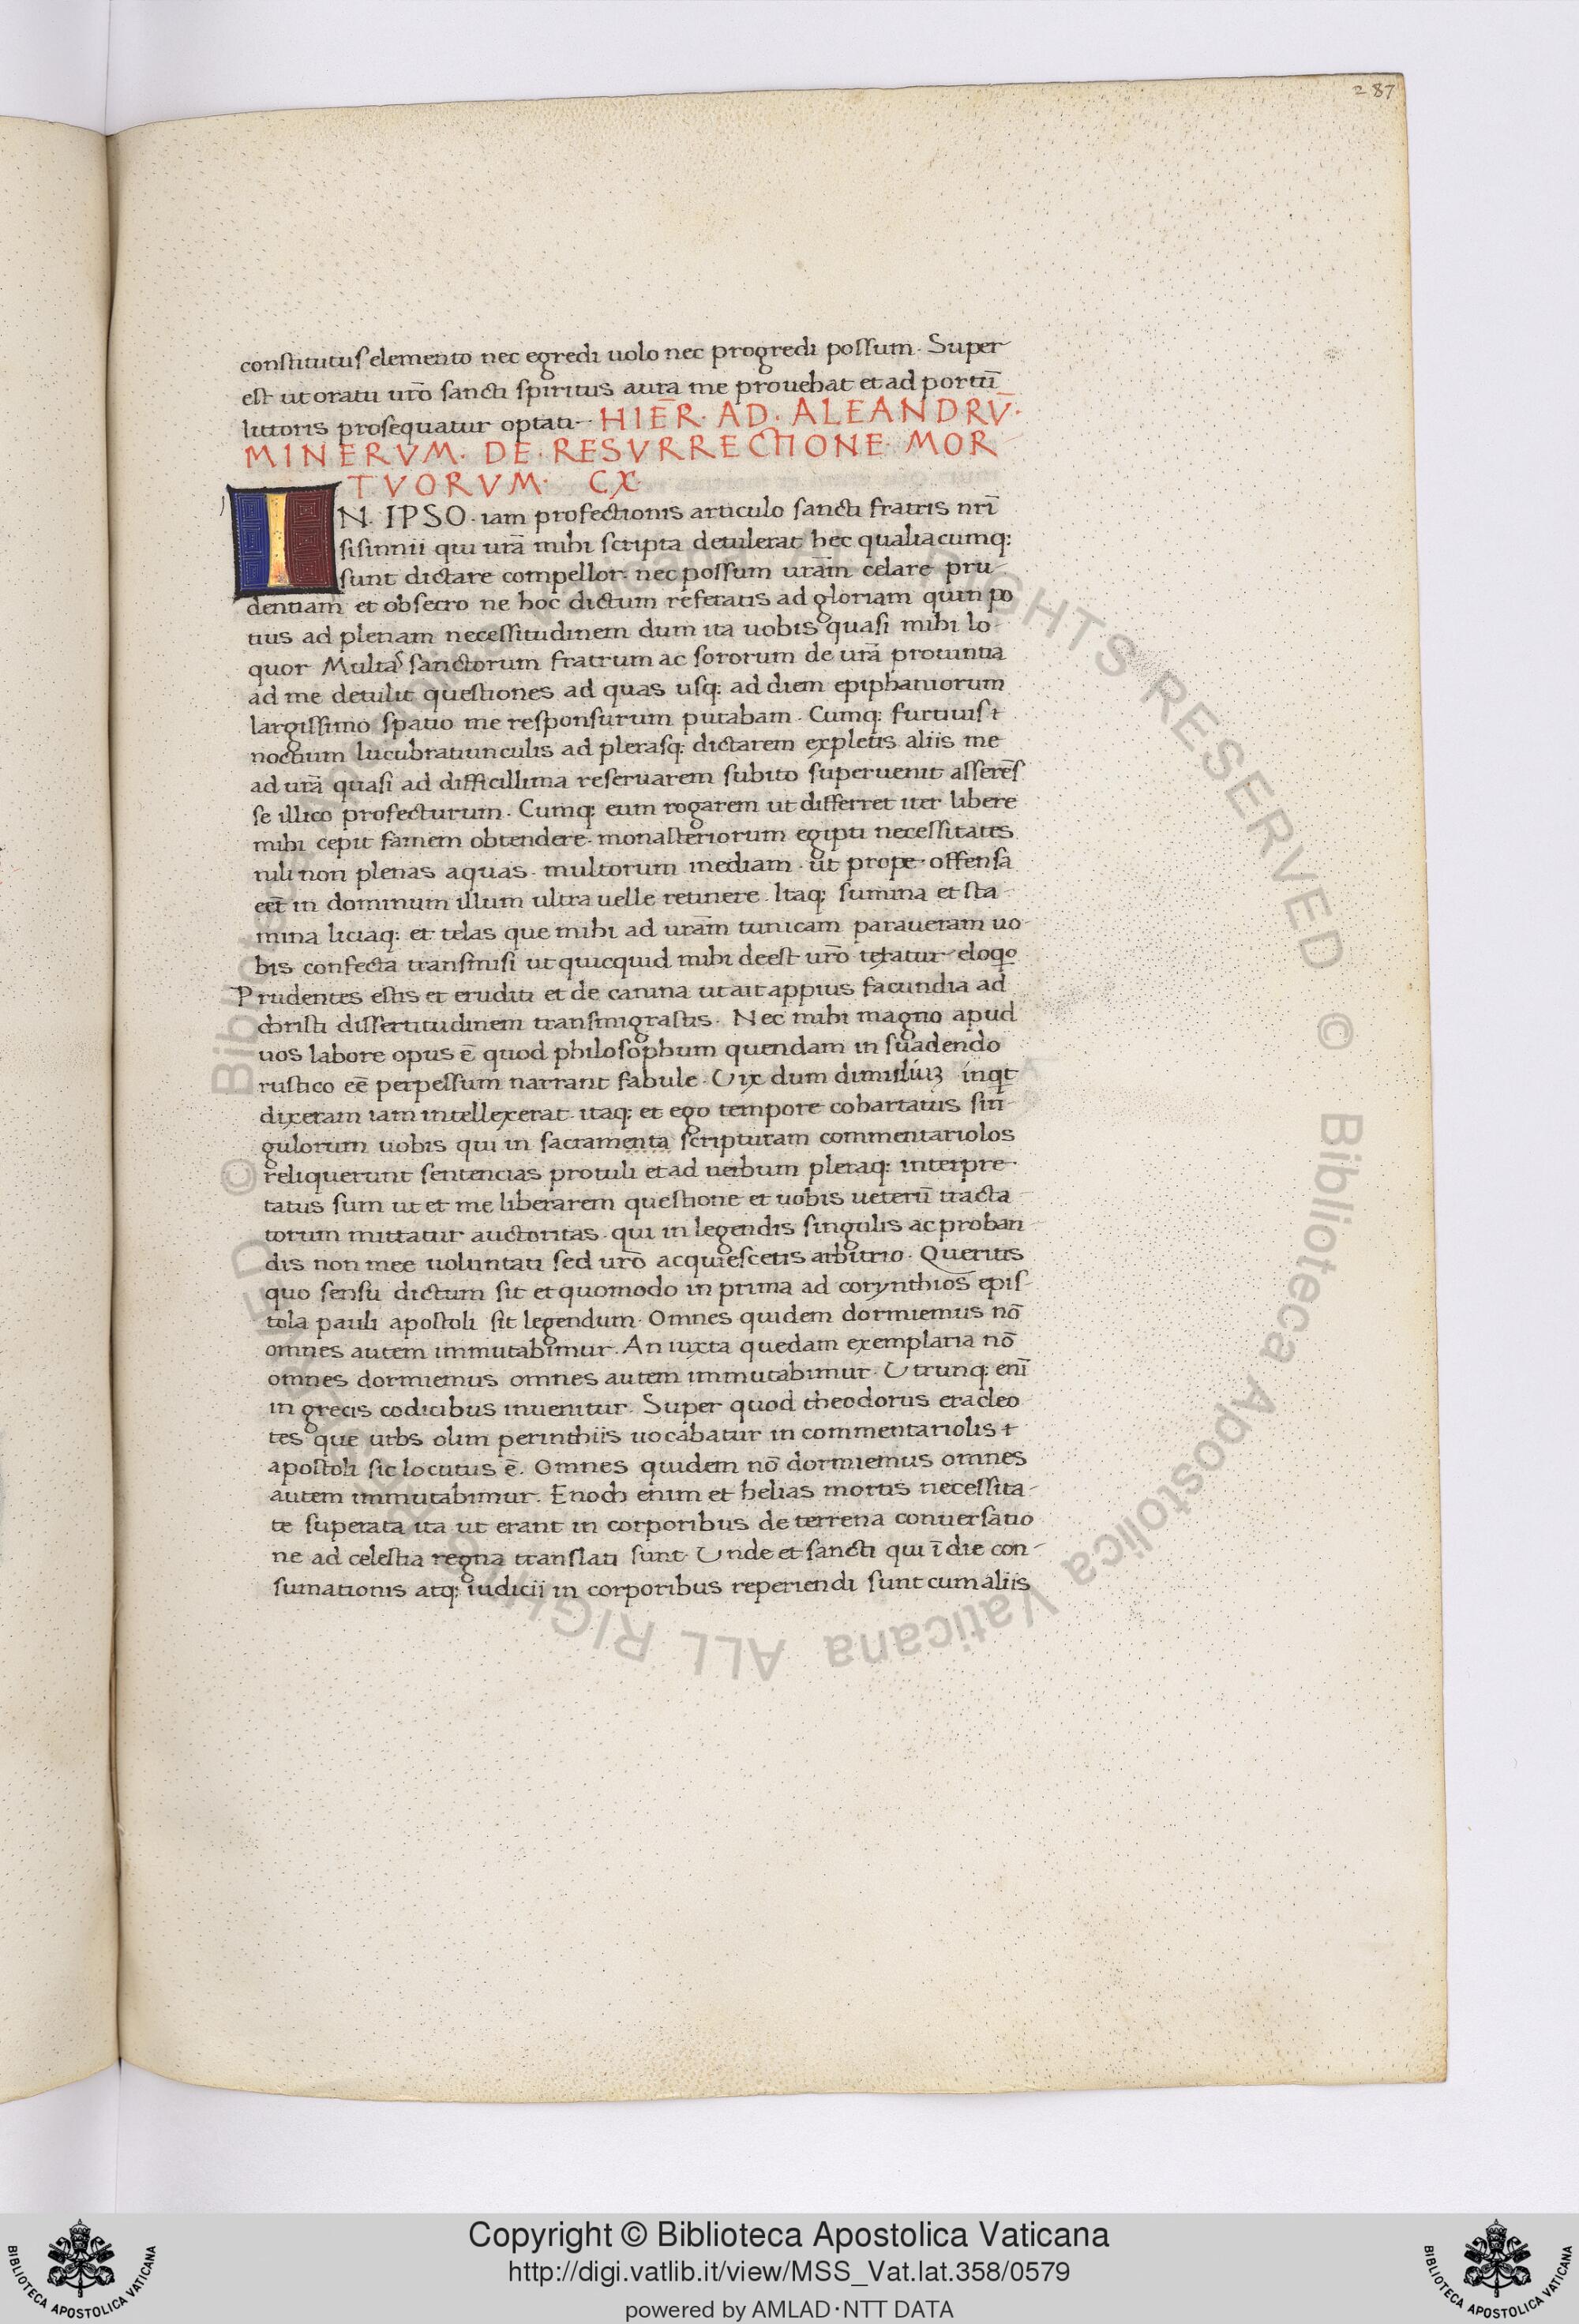 287
constitutus elemento nec egredi uolo nec progredi possum. Super
est ut oratu ur̄o sancti spiritus aura me prouehat et ad portū
littoris prosequatur optati. HIER̄. AD. ALEANDRV̄.
MINERVM. DE. RESVRRECTIONE. MOR
TVORVM. CX.
IN. IPSO. iam profectionis articulo sancti fratris nr̄i
sisinnii qui ur̄a mihi scripta detulerat hec qualiacumq:
sunt dictare compellor. nec possum ur̄am celare pru
dentiam et obsecro ne hoc dictum referatis ad gloriam quin po
tius ad plenam necessitudinem dum ita uobis quasi mihi lo
quor Multas sanctorum fratrum ac sororum de ur̄a prouintia
ad me detulit questiones ad quas usq: ad diem epiphaniorum
largissimo spatio me responsurum putabam. Cumq: furtiuis &
noctium lucubratiunculis ad plerasq: dictarem expletis aliis me
ad ur̄a quasi ad difficillima reseruarem subito superuenit asserēs
se illico profecturum. Cumq: eum rogarem ut differret iter libere
mihi cepit famem obtendere. monasteriorum egipti necessitates
nili non plenas aquas. multorum inediam. ut prope offensa
eēt in dominum illum ultra uelle retinere. Itaq; summa et sta
mina liciaq: et telas que mihi ad ur̄am tunicam paraueram uo
bis confecta transmisi ut quicquid mihi deest ur̄o texatur eloqo
Prudentes estis et eruditi et de canina ut ait appius facundia ad
christi dissertitudinem transmigrastis. Nec mihi magno apud
uos labore opus ē quod philosophum quendam in suadendo
rustico eē perpessum narrant fabule. Vix dum dimidiuꝫ inqt
dixeram iam intellexerat. itaq: et ego tempore cohartatus sin
gulorum uobis qui in sacramenta scripturam commentariolos
reliquerunt sentencias protuli et ad uerbum pleraq: interpre
tatus sum ut et me liberarem questione et uobis ueterū tracta
torum mittatur auctoritas. qui in legendis singulis ac proban
dis non mee uoluntati sed ur̄o acquiescetis arbitrio. Queritis
quo sensu dictum sit et quomodo in prima ad corynthios epis
tola pauli apostoli sit legendum. Omnes quidem dormiemus nō
omnes autem immutabimur. An iuxta quedam exemplaria nō
omnes dormiemus omnes autem immutabimur. Vtrunq: enī
in grecis codicibus inuenitur. Super quod theodorus eracleo
tes que urbs olim perinthiis uocabatur in commentariolis &
apostoli sic locutus ē. Omnes quidem nō dormiemus omnes
autem immutabimur. Enoch enim et helias mortis necessita
te superata ita ut erant in corporibus de terrena conuersatio
ne ad celestia regna translati sunt. Vnde et sancti qui ī die con
sumationis atq: iudicii in corporibus reperiendi sunt cum aliis
© Biblioteca Apostolica Vaticana ALL RIGHTS RESERVED
Copyright © Biblioteca Apostolica Vaticana
http://digi.vatlib.it/view/MSS_Vat.lat.358/0579
powered by AMLAD·NTT DATA
BIBLIOTECA APOSTOLICA VATICANA
BIBLIOTECA APOSTOLICA VATICANA